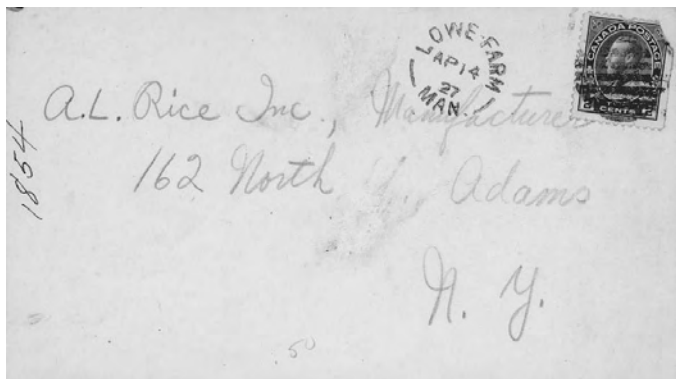 LOWE FARM
AP 14
27
MAN.
CANADA POSTAGE
2 CENTS 2
A.L. Rice Inc., Manufacturers
162 North Adams
N. Y.
1854
.50